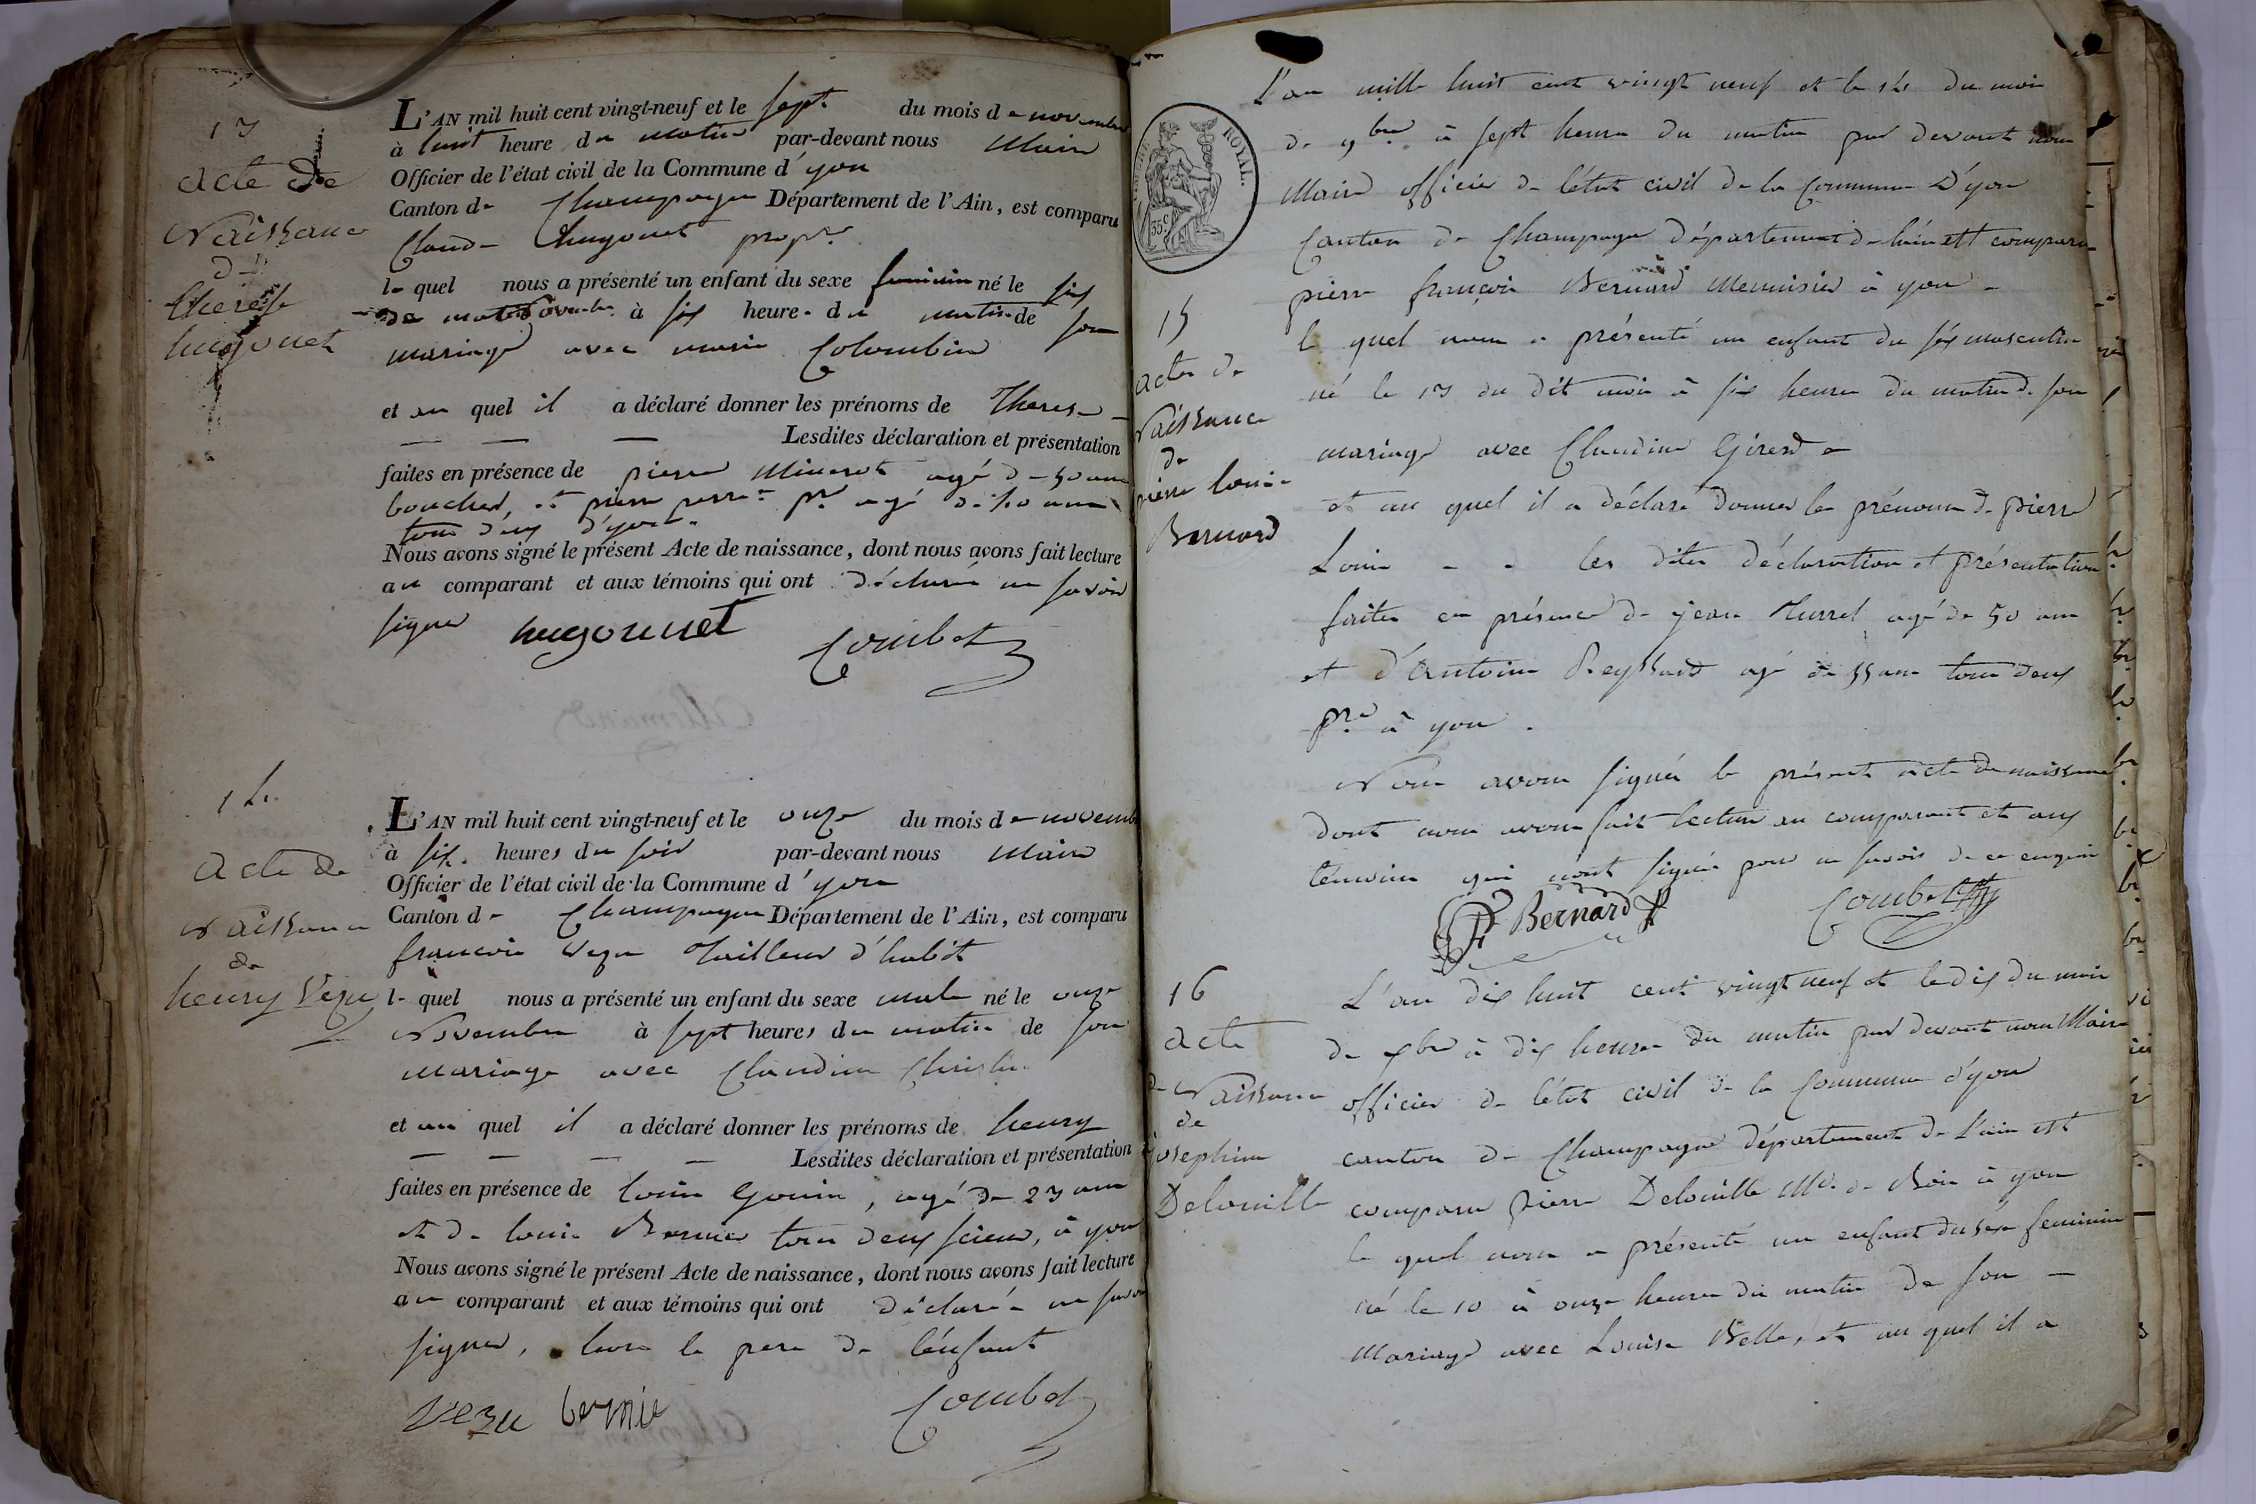 13
acte de
Naissance
de
therese
hugonet
L'AN mil huit cent vingt-neuf et le sept du mois de novembre
à huit heure du matin par-devant nous Maire
Officier de l'état civil de la Commune d'yon
Canton de Champagne Département de l'Ain, est comparu
Claude hugonet propre
le quel nous a présenté un enfant du sexe feminin né le six
novembre à six heure du matin de son
mariage avec marie Colombin
et au quel il a déclaré donner les prénoms de Therese
Lesdites déclaration et présentation
faites en présence de pierre agé de 50 ans
boucher, et pierre pre agé de ans
tous deux d'yon
Nous avons signé le présent Acte de naissance, dont nous avons fait lecture
au comparant et aux témoins qui ont déclaré ne savoir
signer hugonnet Combet
14
acte de
Naissance
de
henry Vezu
L'AN mil huit cent vingt-neuf et le onze du mois de novembre
à six heures du soir par-devant nous Maire
Officier de l'état civil de la Commune d'yon
Canton de Champagne Département de l'Ain, est comparu
francois Vezu Tailleur d'habit
le quel nous a présenté un enfant du sexe male né le onze
Novembre à sept heures du matin de son
mariage avec Claudine Christin
et au quel il a déclaré donner les prénoms de henry
Lesdites déclaration et présentation
faites en présence de louis Gonin, agé de 23 ans
et de louis Bernier tous deux scieurs, à yon
Nous avons signé le présent Acte de naissance, dont nous avons fait lecture
au comparant et aux témoins qui ont déclaré ne savoir
signer, hors le pere de l'enfant
vezu bernie Combet
ROYAL.
35 c
15
acte de
Naissance
de
pierre louis
Bernard
L'an mille huit cent vingt neuf et le 14 du mois
de 9bre à sept heures du matin par devant nous
Maire officier de l'état civil de la Commune D'yon
Canton de Champagne département de l'ain est comparu
pierre françois Bernard Menuisier à yon
le quel nous a présenté un enfant du séx masculin
né le 13 du dit mois à six heures du matin de son
mariage avec Claudine Girerd
et au quel il a déclaré donner les prénoms de pierre
Louis les dites déclaration et présentation
faites en présence de jean Hurrel agé de 50 ans
et d'Antoine Reyssard agé de 55 ans tous deux
pre à yon.
Nous avons signés le présent acte de naissance
dont nous avons fait lecture au comparant et aux
témoins qui n'ont signés pour ne savoir de ce enquis
Bernard Combet
16
Acte
de Naissance
de
josephine
Delouille
L'an dix huit cent vingt neuf et le dix du mois
de xbre à dix heures du matin par devant nous Maire
officier de l'état civil de la Commune d'yon
canton de Champagne département de L'ain est
comparu pierre Delouille Md de Bois à yon
le quel nous a présenté un enfant du séxe feminin
né le 10 à onze heures du matin de son
Mariage avec Louise Belle, et au quel il a